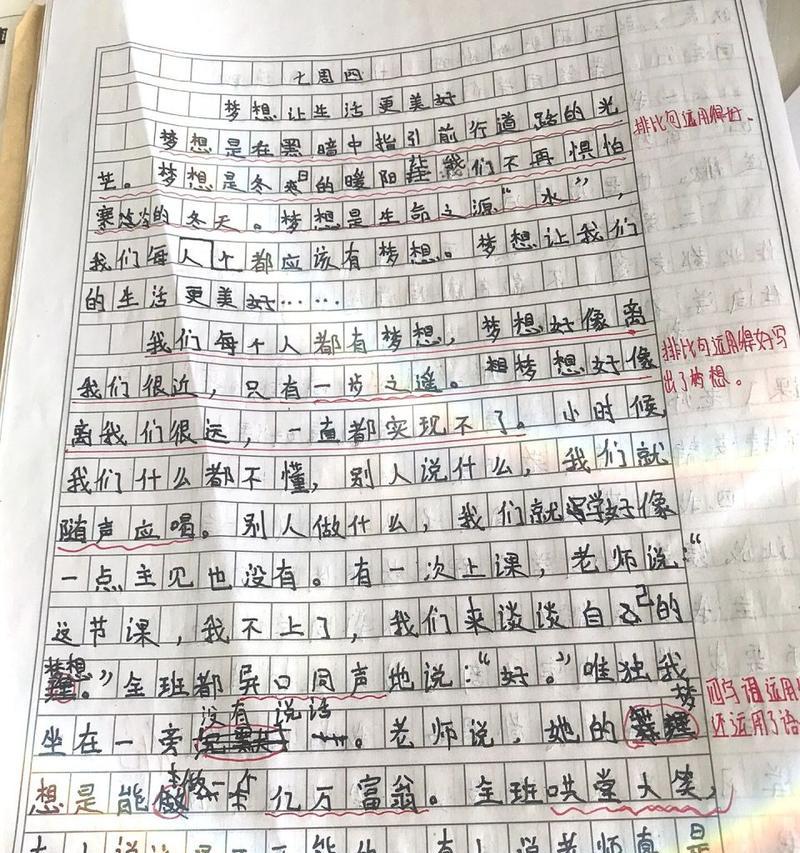 七周四
梦想让生活更美好
梦想是在黑暗中指引前行道路的光
排比句运用得好。
芒。梦想是冬日的暖阳让我们不再惧怕
寒冷的冬天。梦想是生命之源“水”，
我们每人个都应该有梦想。梦想让我们
的生活更美好……
我们每个人都有梦想，梦想好像离
我们很近，只有一步之遥。梦想好像
排比句运用得好写
出了
想。
离我们很远，一直都实现不了。小时候，
我们什么都不懂，别人说什么，我们就
随声应喝。别人做什么，我们就学好像
一点主见也没有。有一次上课，老师说：“
这节课，我不上了，我们来谈谈自己的
梦想。”全班都异口同声地说：“好。”唯独我
坐在一旁没有说话。老师说，她的梦
四字词语运用
还运用了语
想是能做一个亿万富翁。全班哄堂大笑，